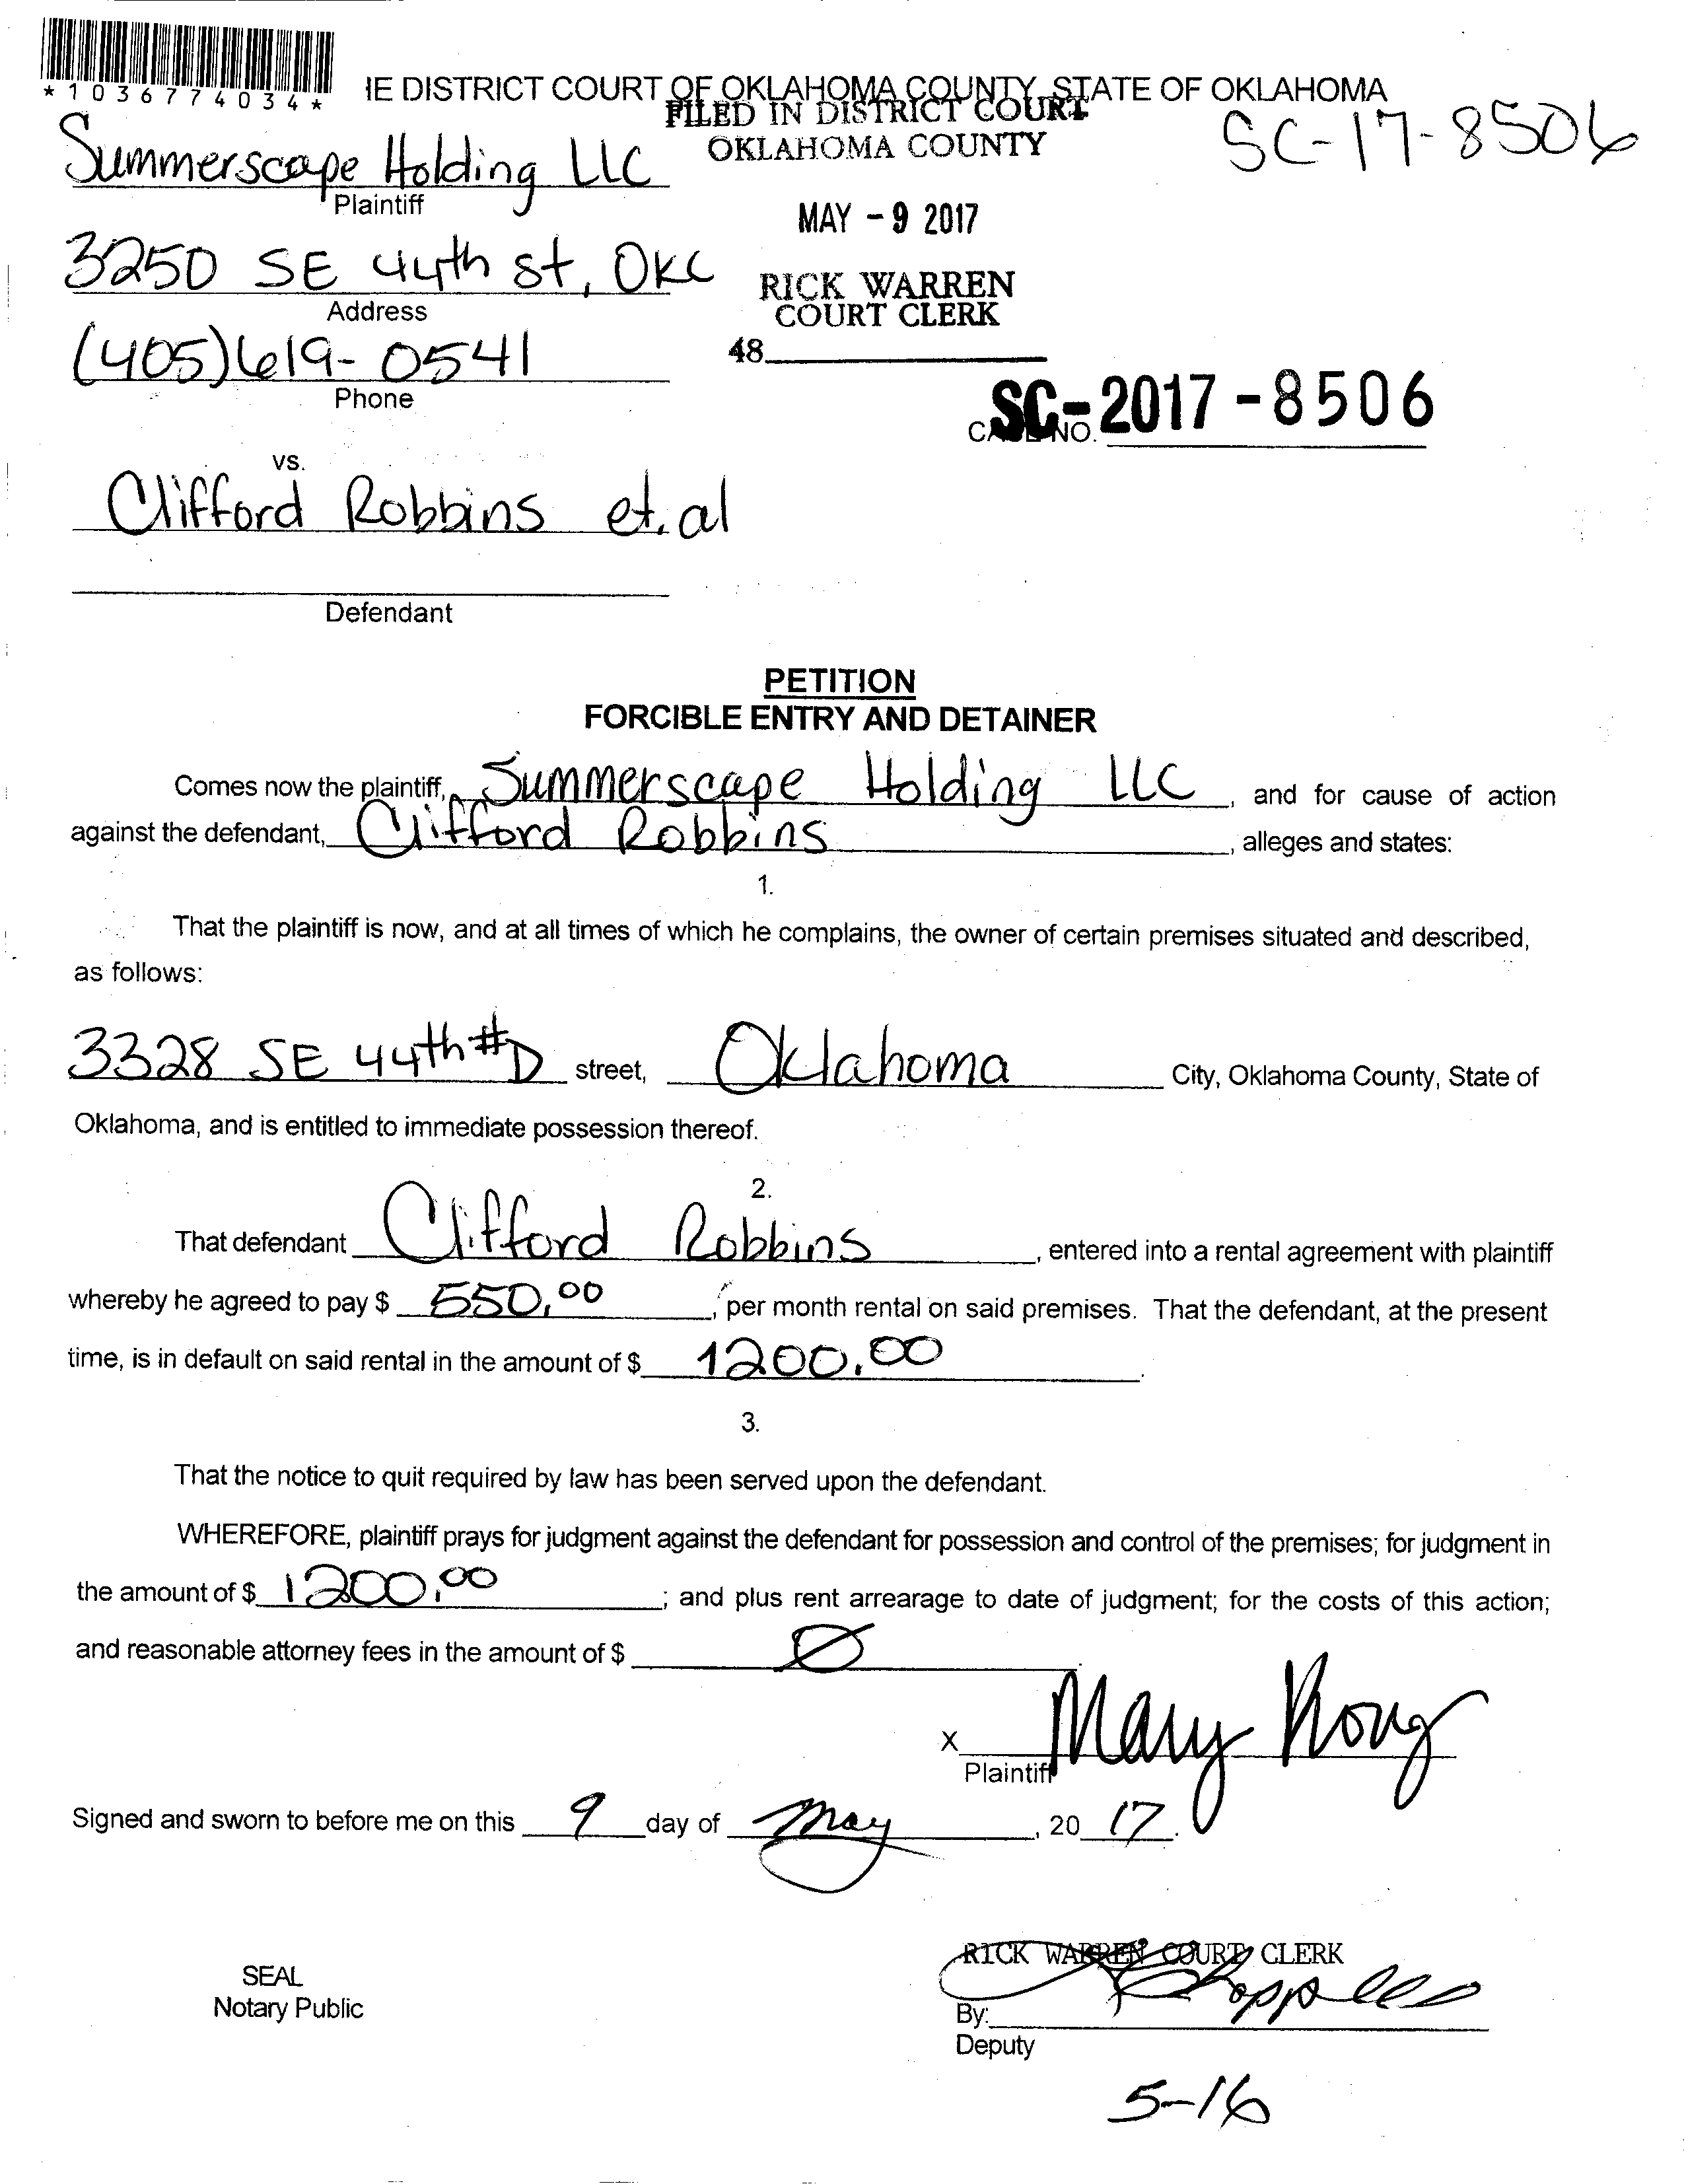 *1036774034*
IE DISTRICT COURT OF OKLAHOMA COUNTY, STATE OF OKLAHOMA
FILED IN DISTRICT COURT
OKLAHOMA COUNTY
SC-17-8506
Summerscape Holding LLC
Plaintiff
MAY - 9 2017
3250 SE 44th st, OKC
Address
RICK WARREN
COURT CLERK
(405)619-0541
Phone
48
CASE NO. SC-2017-8506
vs.
Clifford Robbins et. al
Defendant
PETITION
FORCIBLE ENTRY AND DETAINER
Comes now the plaintiff, Summerscape Holding LLC, and for cause of action
against the defendant, Clifford Robbins, alleges and states:
1.
That the plaintiff is now, and at all times of which he complains, the owner of certain premises situated and described,
as follows:
3328 SE 44th #D street, Oklahoma City, Oklahoma County, State of
Oklahoma, and is entitled to immediate possession thereof.
2.
That defendant Clifford Robbins, entered into a rental agreement with plaintiff
whereby he agreed to pay $ 550.00, per month rental on said premises. That the defendant, at the present
time, is in default on said rental in the amount of $ 1200.00.
3.
That the notice to quit required by law has been served upon the defendant.
WHEREFORE, plaintiff prays for judgment against the defendant for possession and control of the premises; for judgment in
the amount of $ 1200.00; and plus rent arrearage to date of judgment; for the costs of this action;
and reasonable attorney fees in the amount of $ Ø.
x Mary
Plaintiff
Signed and sworn to before me on this 9 day of May, 20 17.
RICK WARREN COURT CLERK
SEAL
Notary Public
By:
Deputy
5-16